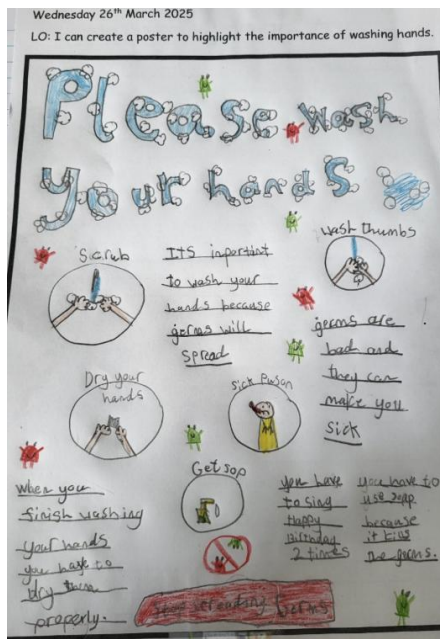 Wednesday 26th March 2025
LO: I can create a poster to highlight the importance of washing hands.
Please wash
your hands
Scrub
Its inportant
to wash your
hands because
germs will
spread
wash thumbs
germs are
bad and
they can
make you
sick
Dry your
hands
Sick Person
Get sop
When you
finish washing
your hands
you have to
dry them
properly.
you have
to sing
Happy
Birthday
2 times
you have to
use soap
because
it kils
the germs.
Stop spreading Germs